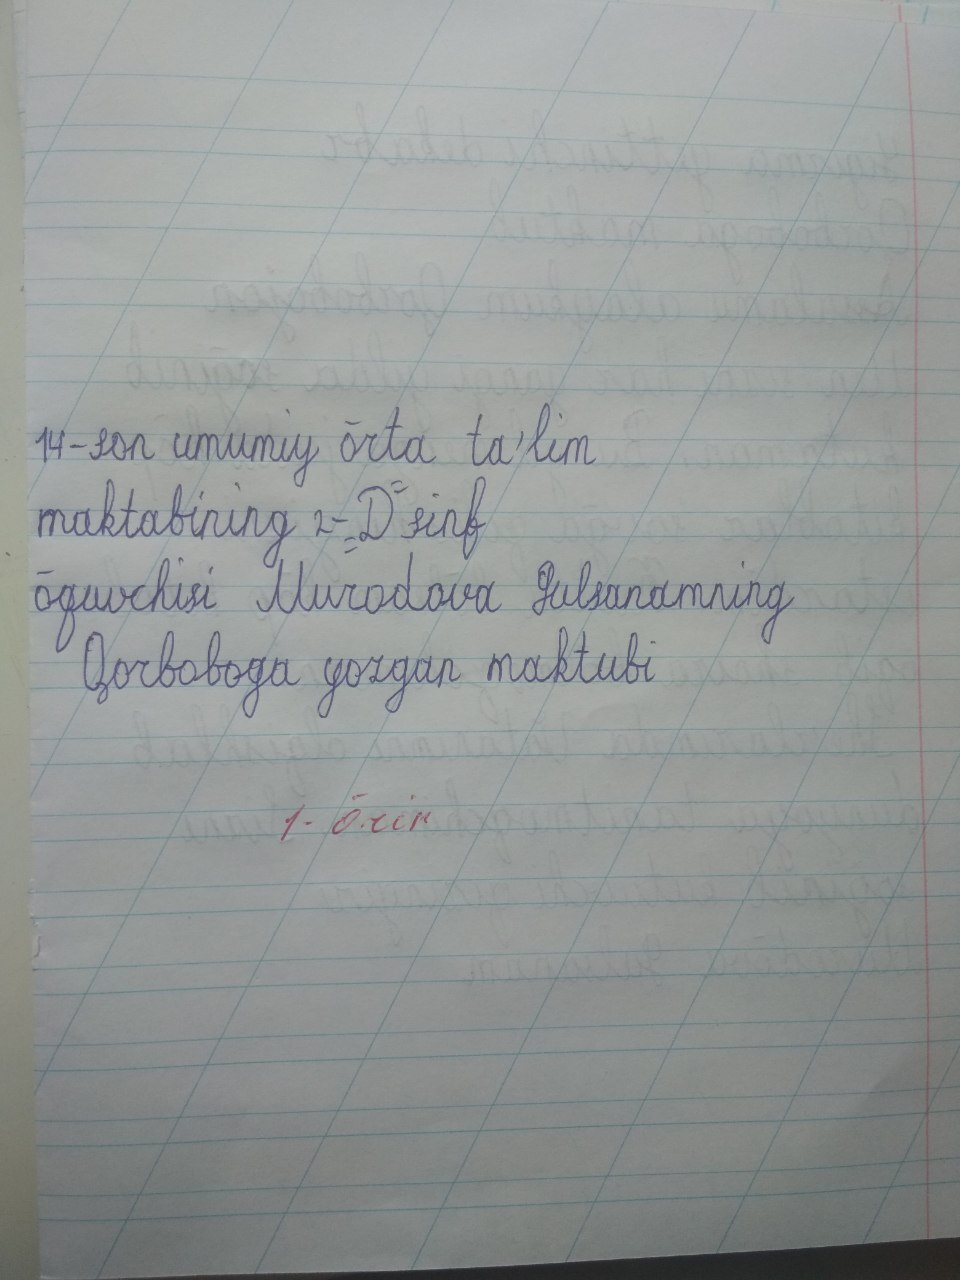 14-son umumiy ōrta ta'lim
maktabining 2-"D" sinf
ōquvchisi Murodova Gulsanamning
Qorboboga yozgan maktubi
1-ōrin